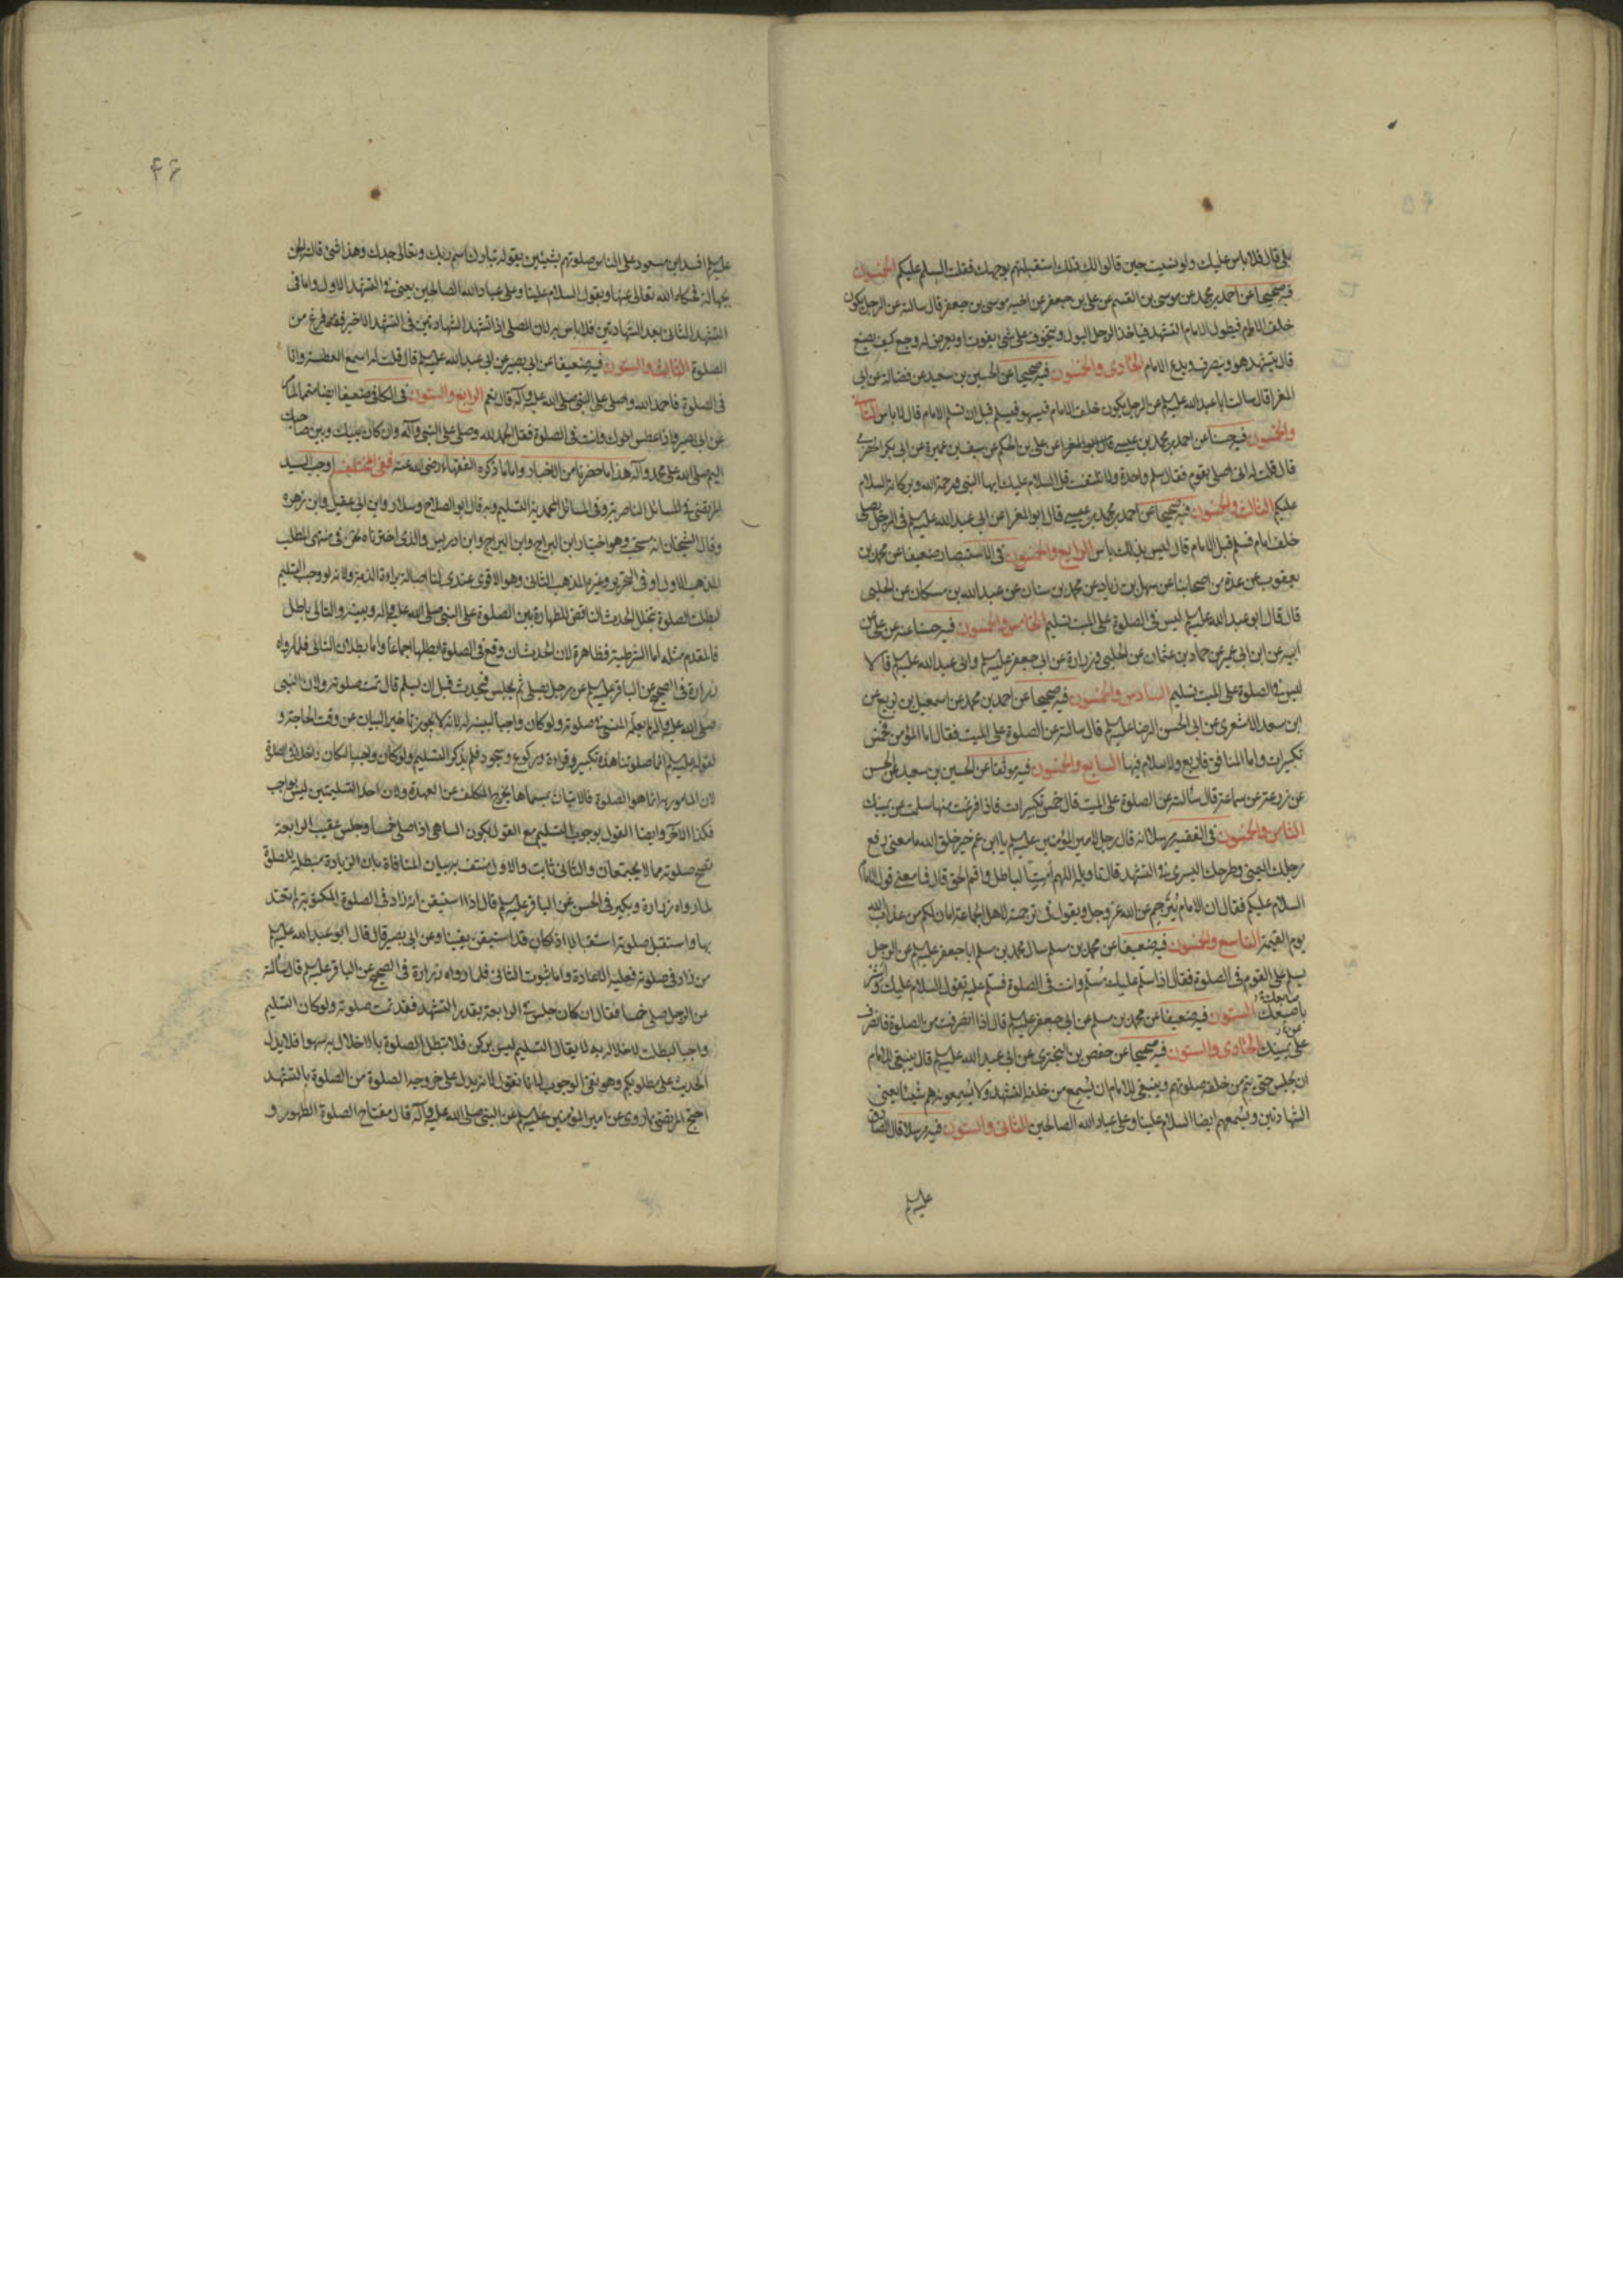 بلى قال فلا باس عليك ولو نسيت حين قالوا لك ذلك استقبلتهم بوجهك فقلت السلم عليكم الخمسون
فيه صحيحا عن احمد بن محمد عن موسى بن القسم عن علي بن جعفر عن اخيه موسى بن جعفر قال سالته عن الرجل يكون
خلف الامام فيطول الامام التشهد فياخذ الرجل البول او يتخوف على شئ يفوت او يعرض له وجع كيف يصنع
قال يتشهد هو وينصرف ويدع الامام الحادى والخمسون فيه صحيحا عن الحسين بن سعيد عن فضالة عن ابى
المغرا قال سالت ابا عبد الله عليه السلم عن الرجل يكون خلف الامام فيسهو فيسلم قبل ان يسلم الامام قال لا باس الثانى
والخمسون فيه حسنا عن احمد بن محمد بن عيسى قال ابو المغرا عن على بن الحكم عن سيف بن عميرة عن ابى بكر الحضرمى
قال قلت له انى اصلى بقوم فقال سلم واحدة ولا تلتفت قل السلام عليك ايها النبى ورحمة الله وبركاته السلام
عليكم الثالث والخمسون فيه صحيحا عن احمد بن محمد بن عيسى قال ابو المغرا عن ابى عبد الله عليه السلم فى الرجل يصلى
خلف امام فسلم قبل الامام قال ليس بذلك باس الرابع والخمسون فى الاستبصار ضعيفا عن محمد بن
يعقوب عن عدة من اصحابنا عن سهل بن زياد عن محمد بن سنان عن عبد الله بن مسكان عن الحلبى
قال قال ابو عبد الله عليه السلم ليس فى الصلوة على الميت تسليم الخامس والخمسون فيه حسنا عنه عن على عن
ابيه عن ابن ابى عمير عن حماد بن عثمان عن الحلبى وزرارة عن ابى جعفر عليه السلم وابى عبد الله عليه السلم قالا
ليس فى الصلوة على الميت تسليم السادس والخمسون فيه صحيحا عن احمد بن محمد عن اسمعيل بن بزيع عن
ابن سعد الاشعرى عن ابى الحسن الرضا عليه السلم قال سالته عن الصلوة على الميت فقال اما المؤمن فخمس
تكبيرات واما المنافق فاربع ولا سلام فيها السابع والخمسون فيه موثقا عن الحسين بن سعيد عن الحسن
عن زرعة عن سماعة قال سألته عن الصلوة على الميت قال خمس تكبيرات فاذا فرغت منها سلمت عن يمينك
الثامن والخمسون فى الفقيه مرسلا انه قال رجل لامير المؤمنين عليه السلم يا ابن عم خير خلق الله ما معنى رفع
رجلك اليمنى وطرحك اليسرى فى التشهد قال تاويله اللهم أمت الباطل واقم الحق قال فما معنى قول الامام
السلام عليكم فقال ان الامام يترجم عن الله عز وجل ويقول فى ترجمته لاهل الجماعة امان لكم من عذاب الله
يوم القيمة التاسع والخمسون فيه ضعيفا عن محمد بن مسلم سال محمد بن مسلم ابا جعفر عليه السلم عن الرجل
يسلم على القوم فى الصلوة فقال اذا سلم عليك مسلم وانت فى الصلوة فسلم عليه تقول السلام عليك واشر
باصبعك الستون فيه ضعيفا عن محمد بن مسلم عن ابى جعفر عليه السلم قال اذا انصرفت من الصلوة فانصرف
عن يمينك الحادى والستون فيه صحيحا عن حفص بن البخترى عن ابى عبد الله عليه السلم قال ينبغى للامام
ان يجلس حتى يتم من خلفه صلوتهم وينبغى للامام ان يسمع من خلفه التشهد ولا يسمعونه هم شيئا يعنى
الشهادتين ويسمعهم ايضا السلام علينا وعلى عباد الله الصالحين الثانى والستون فيه مرسلا قال الصادق
عليه السلم
عليه السلم افسد ابن مسعود على الناس صلوتهم بشيئين بقوله تبارك اسم ربك وتعالى جدك وهذا شئ قالته الجن
بجهالة فحكاه الله تعالى عنها وبقوله السلام علينا وعلى عباد الله الصالحين يعنى فى التشهد الاول واما فى
التشهد الثانى بعد الشهادتين فلا باس به لان المصلى اذا تشهد الشهادتين فى التشهد الاخير فقد فرغ من
الصلوة الثالث والستون فيه ضعيفا عن ابى بصير عن ابى عبد الله عليه السلم قال قلت له اسمع العطسة وانا
فى الصلوة فاحمد الله واصلى على النبى صلى الله عليه وآله قال نعم الرابع والستون فى الكافى ضعيفا ايضا متمما لما
عن ابى بصير واذا عطس اخوك وانت فى الصلوة فقل الحمد لله وصلى على النبى وآله وان كان بينك وبين صاحبك
اليم صلى الله على محمد وآله هذا ما حضرنا من الاخبار واما ما ذكره الفقهاء رضى الله عنه ففى المختلف اوجب السيد
المرتضى فى المسائل الناصرية وفى المسائل المحمدية التسليم وبه قال ابو الصلاح وسلار وابن ابى عقيل وابن زهره
وقال الشيخان انه مستحب وهو اختيار ابن البراج وابن ادريس والذى اخترناه نحن فى منتهى المطلب
المذهب الاول وفى التحرير وغيره المذهب الثانى وهو الاقوى عندى لنا اصالة براءة الذمة ولانه لو وجب التسليم
لبطلت الصلوة بتخلل الحدث الناقض للطهارة بين الصلوة على النبى صلى الله عليه وآله وبينه والتالى باطل
فالمقدم مثله اما الشرطية فظاهرة لان الحدث ان وقع فى الصلوة ابطلها اجماعا واما بطلان التالى فلما رواه
زرارة فى الصحيح عن الباقر عليه السلم عن رجل يصلى ثم يجلس فيحدث قبل ان يسلم قال تمت صلوته ولان النبى
صلى الله عليه وآله لم يعلمه المسئ فى صلوته ولو كان واجبا لبينه له لانه لا يجوز تاخير البيان عن وقت الحاجة و
لقوله عليه السلم انما صلوتنا هذه تكبير وقراءة وركوع وسجود فلم يذكر التسليم ولو كان واجبا لكان داخلا فى الصلوة
لان المامور به انما هو الصلوة فالاتيان بمسماها يخرج المكلف عن العهدة ولان احد التسليمتين ليس بواجب
فكذا الآخر وايضا القول بوجوب التسليم مع القول بكون الساهى اذا صلى خمسا وجلس عقيب الرابعة
تصح صلوته مما لا يجتمعان والثانى ثابت والاول منتف بيان المنافاة بان الزيادة مبطلة للصلوة
لما رواه زرارة وبكير فى الحسن عن الباقر عليه السلم قال اذا استيقن انه زاد فى الصلوة المكتوبة لم يعتد
بها واستقبل صلوته استقبالا اذا كان قد استيقن يقينا وعن ابى بصير قال قال ابو عبد الله عليه السلم
من زاد فى صلوته فعليه الاعادة واما ثبوت الثانى فلما رواه زرارة فى الصحيح عن الباقر عليه السلم قال سألته
عن الرجل صلى خمسا فقال ان كان جلس فى الرابعة بقدر التشهد فقد تمت صلوته ولو كان التسليم
واجبا لبطلت لاخلاله به لا يقال التسليم ليس بركن فلا تبطل الصلوة بالاخلال به سهوا فلا يدل
الحديث على مطلوبكم وهو نفى الوجوب لانا نقول انه يدل على خروجه الصلوة من الصلوة بالتشهد
احتج المرتضى بما روى عن امير المؤمنين عليه السلم عن النبى صلى الله عليه وآله قال مفتاح الصلوة الطهور و